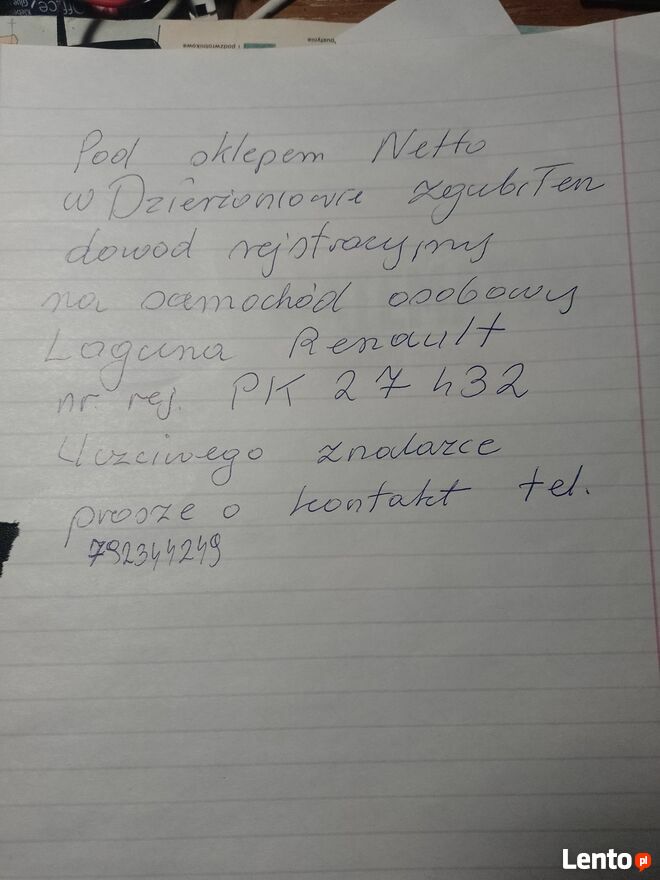 Pod sklepem Netto
w Dzierżoniowie zgubiłem
dowod rejstracyjny
na samochód osobowy
Laguna Renault
nr. rej. PK 27432
Uczciwego znalazce
prosze o kontakt tel.
792344249
Lento.pl